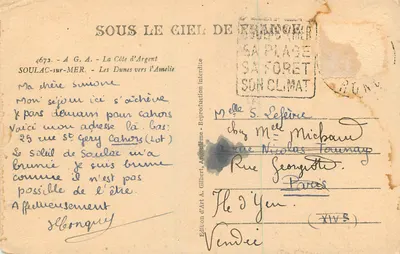 SOUS LE CIEL DE FRANCE
4672. - A. G. A. - La Côte d'Argent
SOULAC-sur-MER. - Les Dunes vers l'Amélie
Ma chère Simone
Mon séjour ici s'achève
Je pars demain pour Cahors
Voici mon adresse là-bas:
25 rue St Géry Cahors (Lot)
Le soleil de Soulac m'a
brunie je suis brune
comme il n'est pas
possible de l'être.
Affectueusement
Edition d'Art A. Gilbert, - Reproduction interdite
SOULAC S/MER
SA PLAGE
SA FORET
SON CLIMAT
Melle S. Lefèvre
chez Mel Michaud
Nicolas
Rue Georgette
Paris
Ile d'Yeu
(XIVe)
Vendée